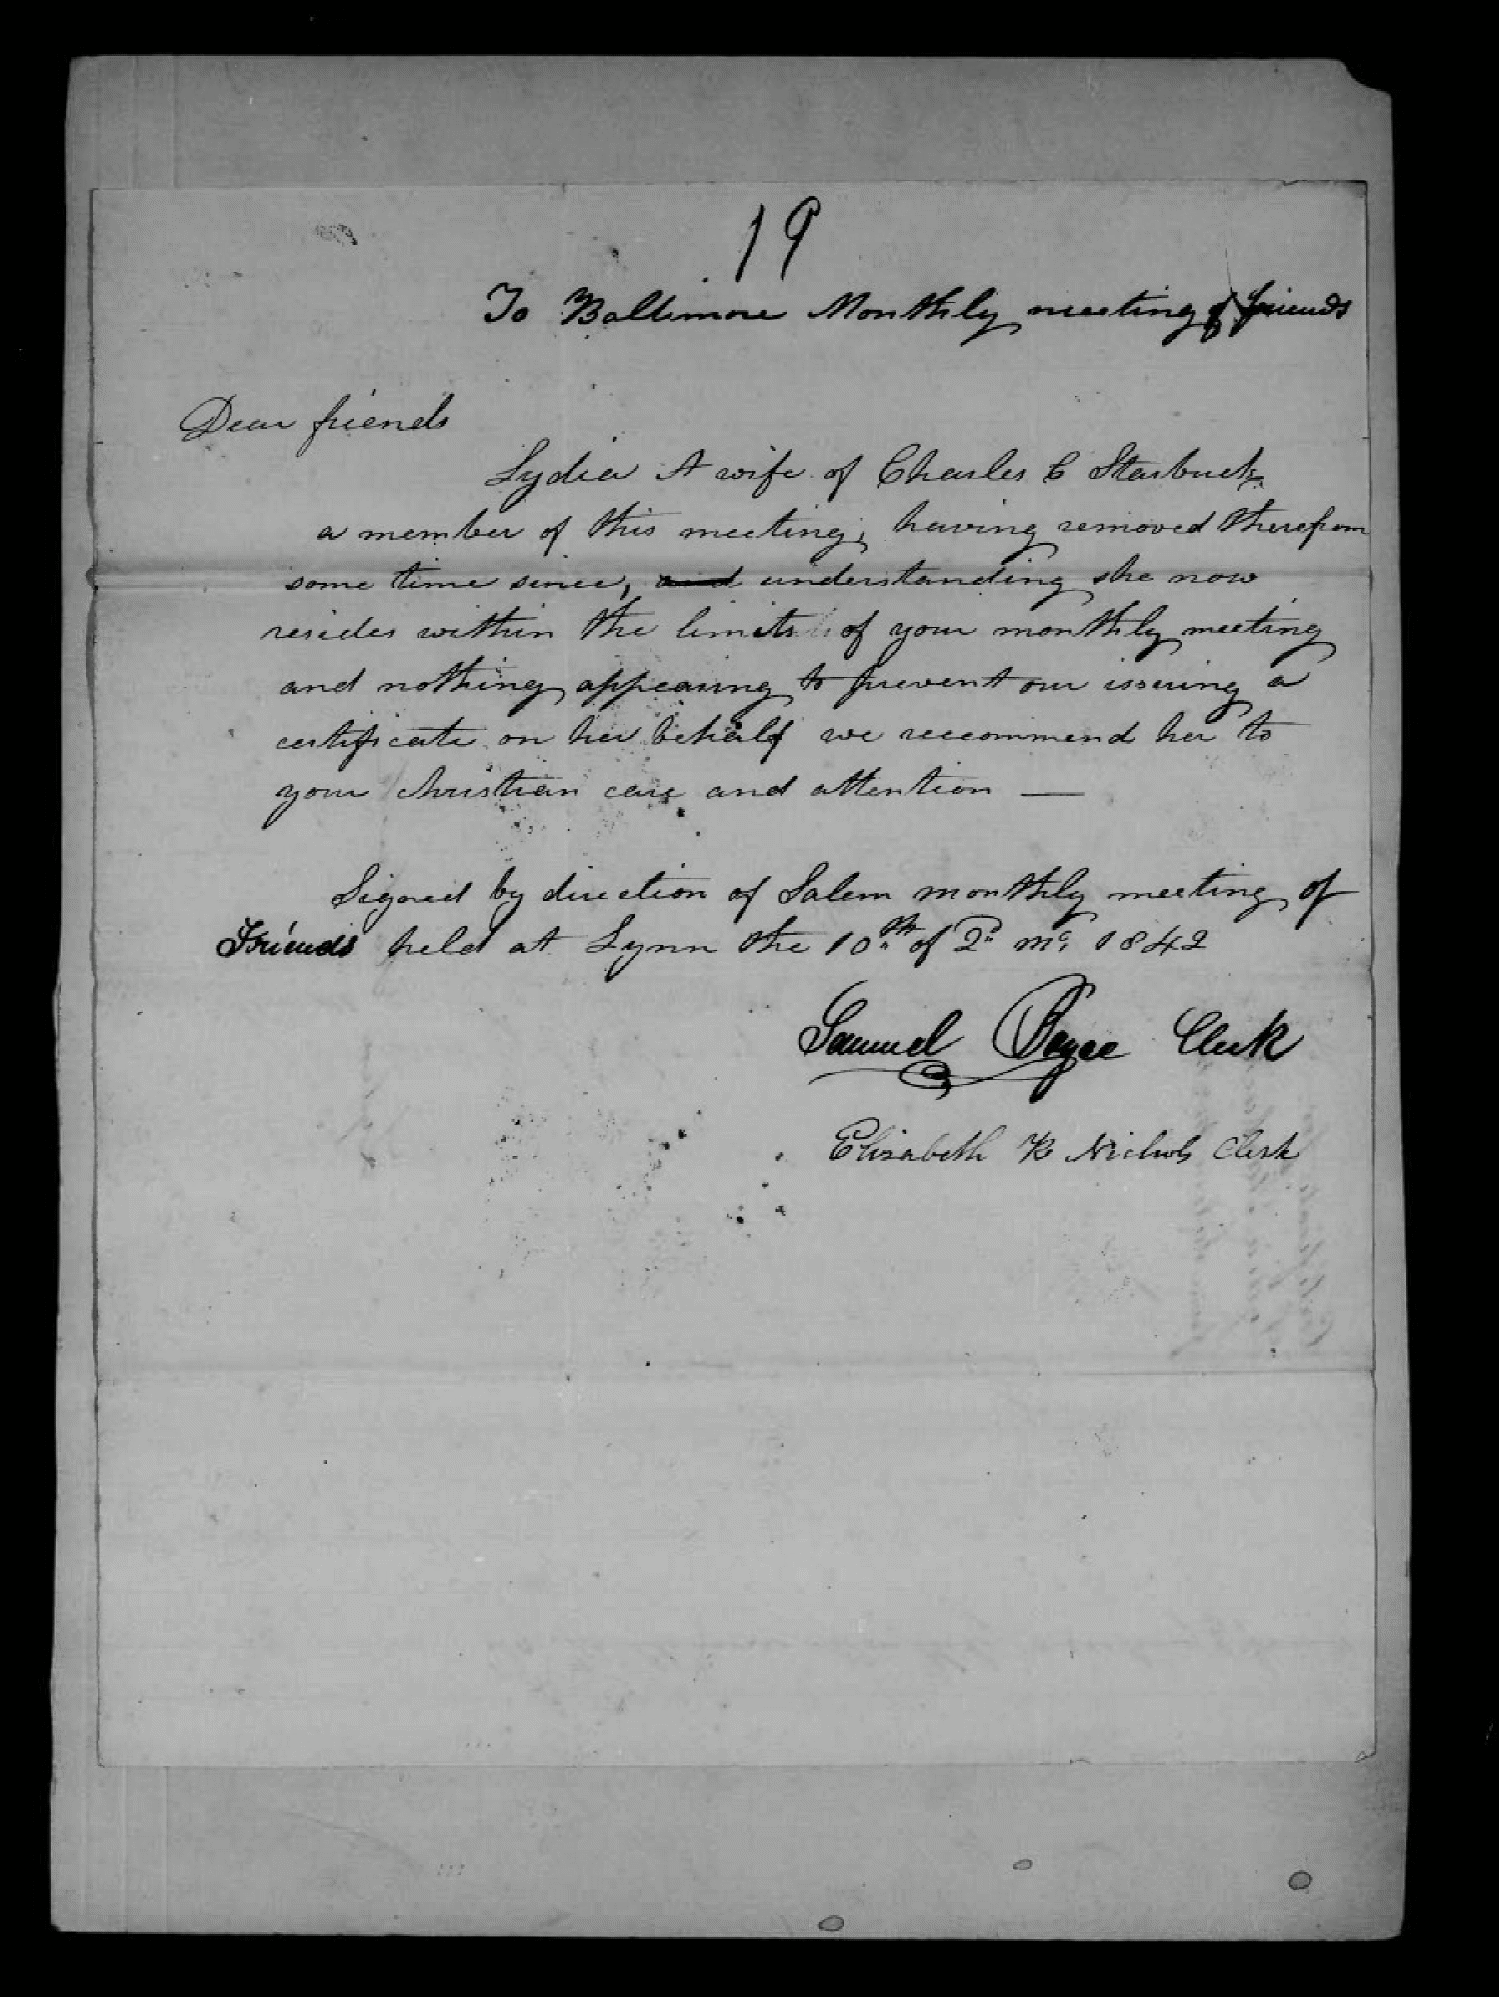 19
To Baltimore Monthly meeting of friends
Dear friends
Lydia A wife of Charles C Starbuck
a member of this meeting, having removed therefrom
some time since, and understanding she now
resides within the limits of your monthly meeting
and nothing appearing to prevent our issuing a
certificate on her behalf we reccommend her to
your christian care and attention —
Signed by direction of Salem monthly meeting of
Friends held at Lynn the 10th of 2d mo. 1842
Samuel Boyce Clerk
Elizabeth K Nichols Clerk